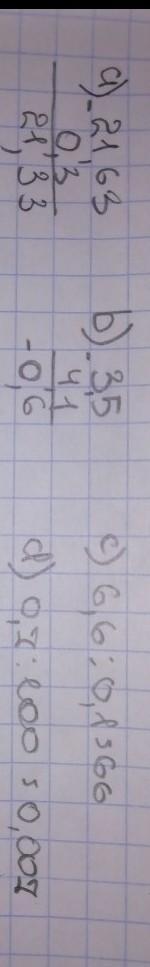 a) - 21,63
0,3
21,33
b) - 3,5
4,1
- 0,6
c) 6,6 : 0,1 = 66
d) 0,7 : 100 = 0,007